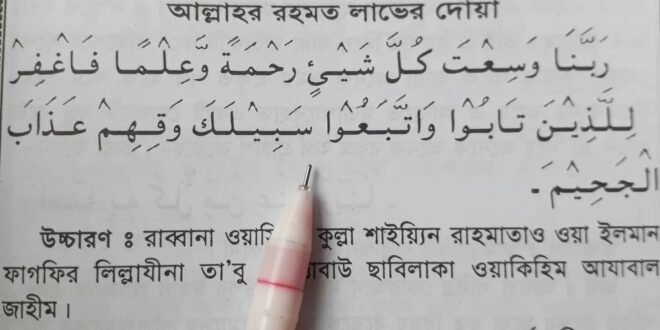 আল্লাহর রহমত লাভের দোয়া
رَبَّنَا وَسِعْتَ كُلَّ شَيْئٍ رَحْمَةً وَّعِلْمًا فَاغْفِرْ
لِلَّذِيْنَ تَابُوْا وَاتَّبَعُوْا سَبِيْلَكَ وَقِهِمْ عَذَابَ
الْجَحِيْمَ -
উচ্চারণ ঃ রাব্বানা কুল্লা শাইয়্যিন রাহমাতাও ওয়া ইলমান
ফাগফির লিল্লাযীনা তা'বূ ছাবিলাকা ওয়াকিহিম আযাবাল
জাহীম।